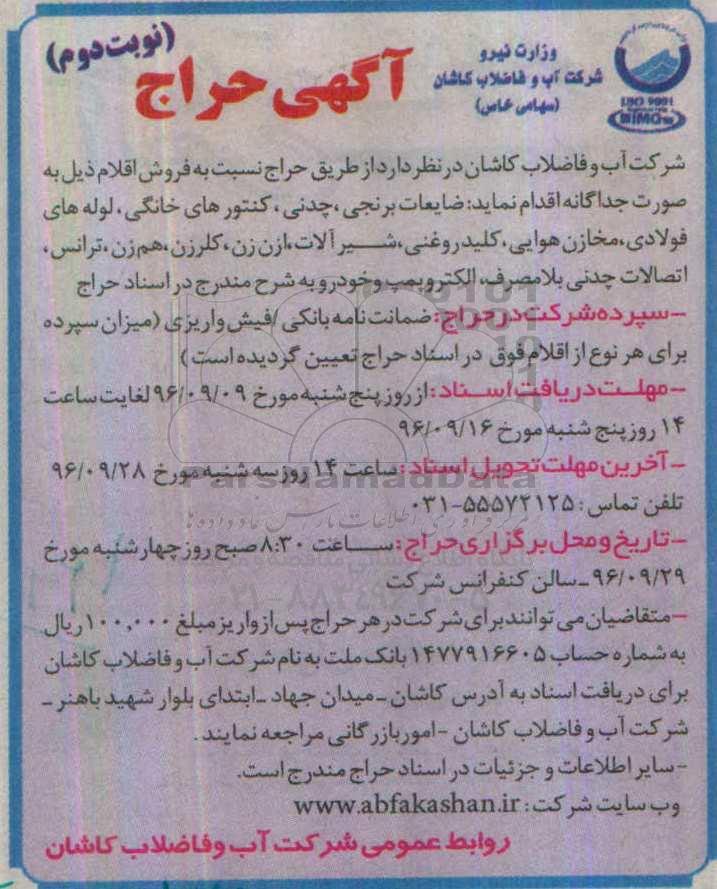 (نوبت دوم)
آگهی حراج
وزارت نیرو
شرکت آب و فاضلاب کاشان
(سهامی خاص)
ISO 9001
IMQ
شرکت آب و فاضلاب کاشان در نظر دارد از طریق حراج نسبت به فروش اقلام ذیل به
صورت جداگانه اقدام نماید: ضایعات برنجی، چدنی، کنتور های خانگی، لوله های
فولادی، مخازن هوایی، کلید روغنی، شیر آلات، ازن زن، کلرزن، هم زن، ترانس،
اتصالات چدنی بلامصرف، الکتروپمپ و خودرو به شرح مندرج در اسناد حراج
-سپرده شرکت در حراج: ضمانت نامه بانکی / فیش واریزی (میزان سپرده
برای هر نوع از اقلام فوق در اسناد حراج تعیین گردیده است)
-مهلت دریافت اسناد: از روز پنج شنبه مورخ ۹۶/۰۹/۰۹ لغایت ساعت
۱۴ روز پنج شنبه مورخ ۹۶/۰۹/۱۶
-آخرین مهلت تحویل اسناد: ساعت ۱۴ روز سه شنبه مورخ ۹۶/۰۹/۲۸
ParsNamadData
تلفن تماس: ۵۵۵۷۴۱۲۵-۰۳۱
-تاریخ و محل برگزاری حراج: ساعت ۸:۳۰ صبح روز چهار شنبه مورخ
۹۶/۰۹/۲۹ - سالن کنفرانس شرکت
-متقاضیان می توانند برای شرکت در هر حراج پس از واریز مبلغ ۱۰۰,۰۰۰ ریال
به شماره حساب ۱۴۷۷۹۱۶۶۰۵ بانک ملت به نام شرکت آب و فاضلاب کاشان
برای دریافت اسناد به آدرس کاشان - میدان جهاد - ابتدای بلوار شهید باهنر -
شرکت آب و فاضلاب کاشان - امور بازرگانی مراجعه نمایند.
-سایر اطلاعات و جزئیات در اسناد حراج مندرج است.
وب سایت شرکت: www.abfakashan.ir
روابط عمومی شرکت آب و فاضلاب کاشان